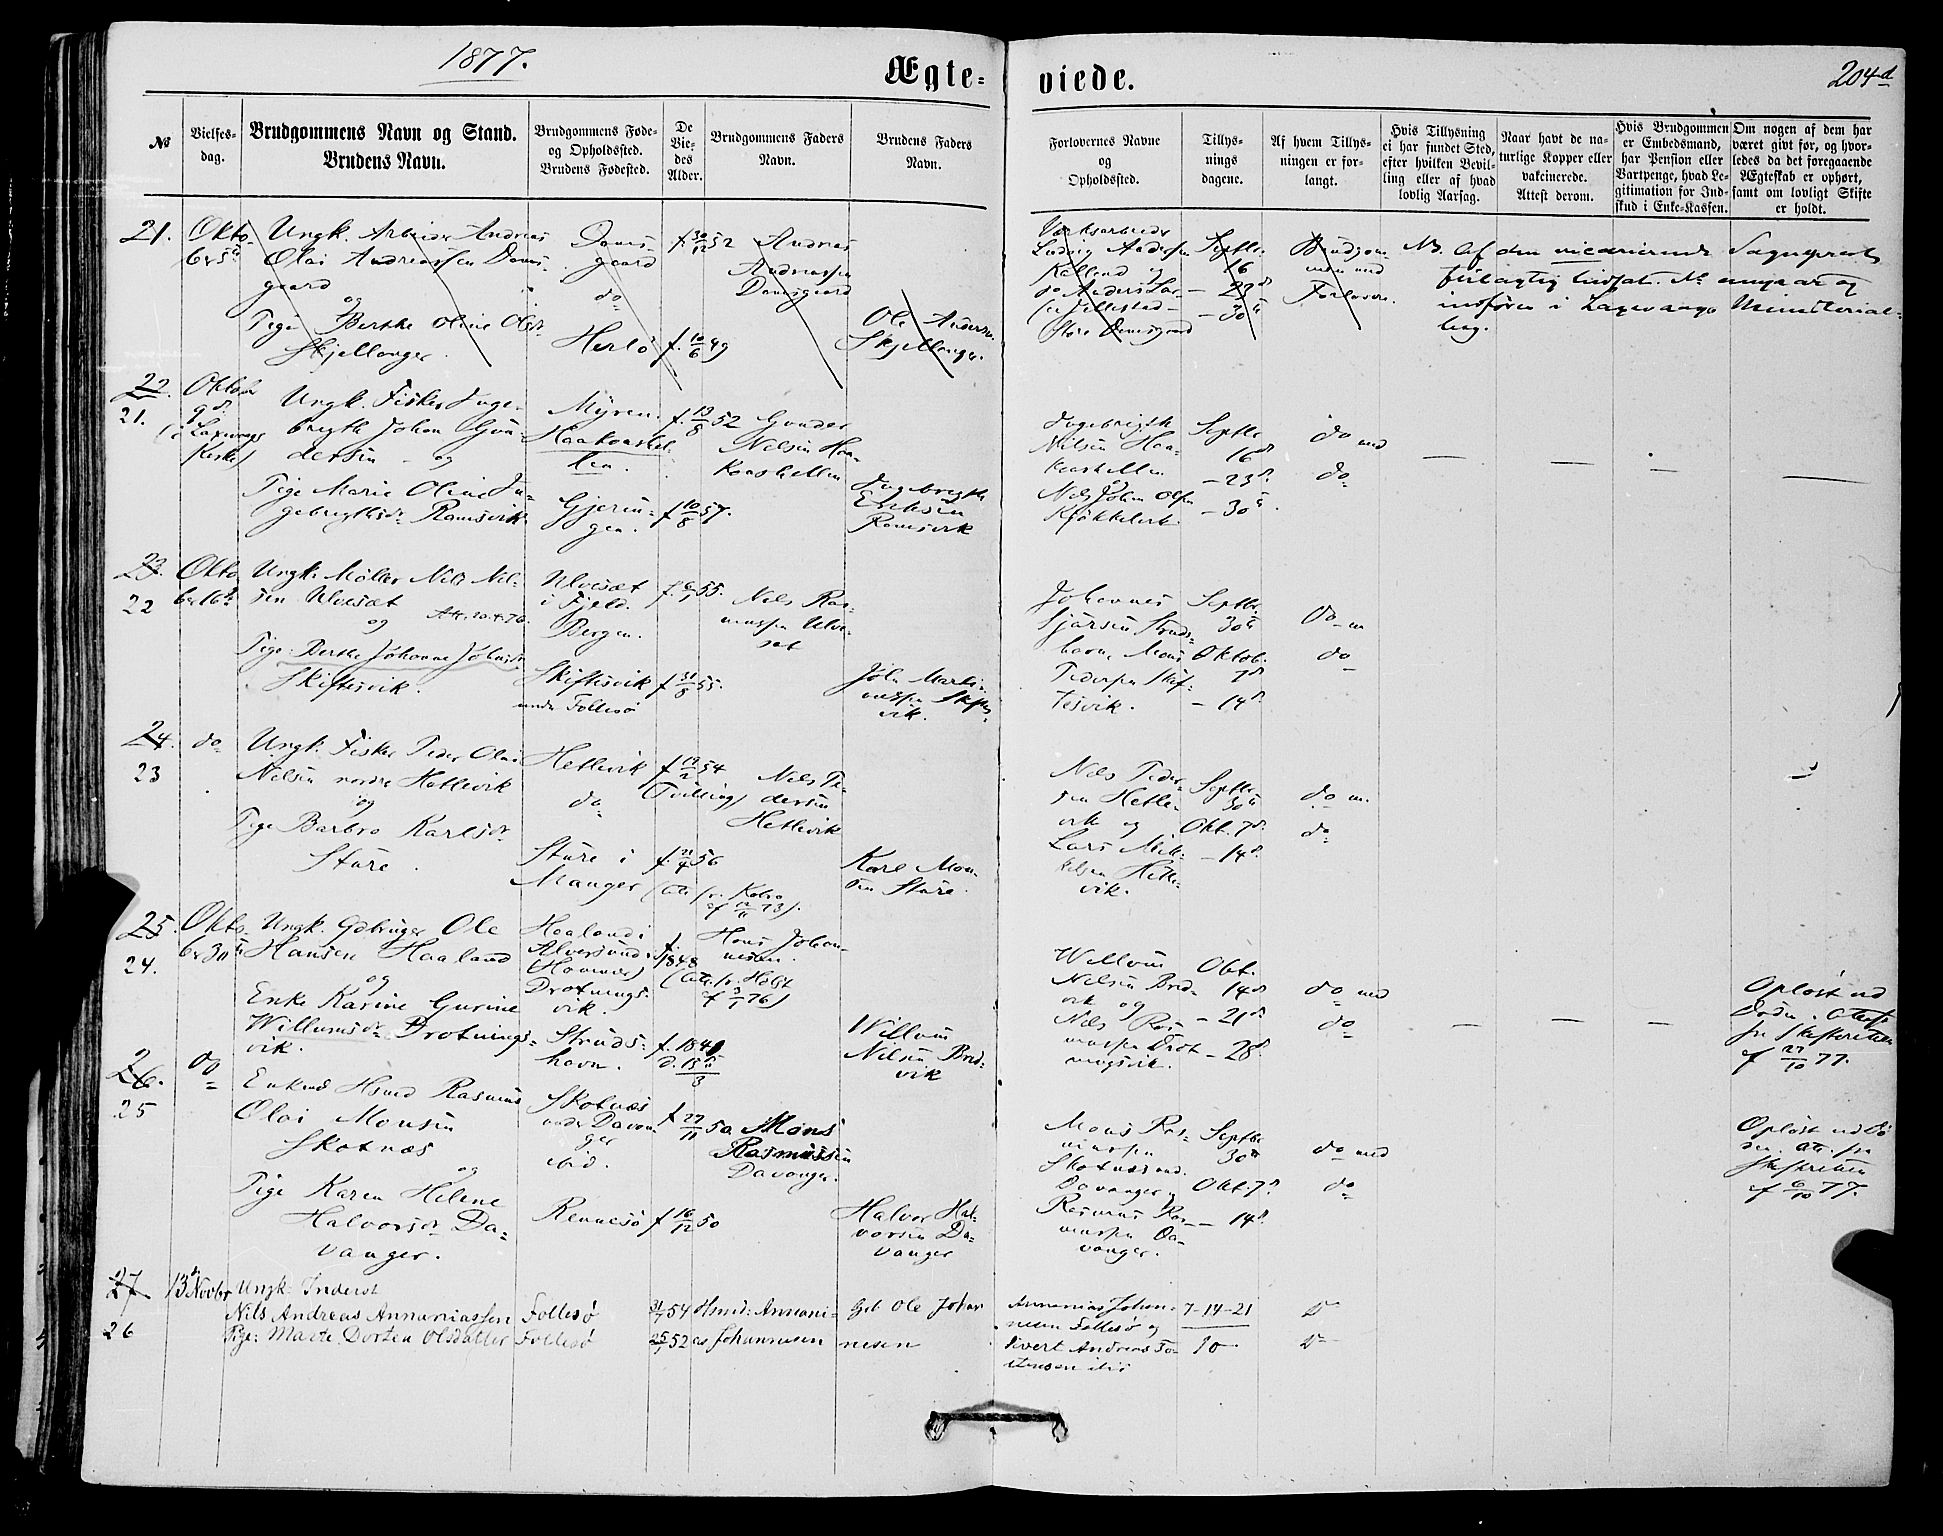 1877.
Ægte-
viede.
204d
№
Vielses-
dag.
Brudgommens Navn og Stand.
Brudens Navn.
Brudgommens Føde-
og Opholdssted.
Brudens Fødested.
De
Vie-
des
Alder.
Brudgommens Faders
Navn.
Brudens Faders
Navn.
Forlovernes Navne
og
Opholdssted.
Tillys-
nings
dagene.
Af hvem Tillys-
ningen er for-
langt.
Hvis Tillysning
ei har fundet Sted,
efter hvilken Bevil-
ling eller af hvad
lovlig Aarsag.
Naar havt de na-
turlige Kopper eller
vakcinerede.
Attest derom.
Hvis Brudgommen
er Embedsmand,
har Pension eller
Vartpenge, hvad Le-
gitimation for Ind-
skud i Enke-Kassen.
Om nogen af dem har
været givt før, og hvor-
ledes da det foregaaende
Ægteskab er ophørt,
samt om lovligt Skifte
er holdt.
21.
Okto-
ber 5te
Ungk. Arbeider Andreas
Olai Andreassen Dams-
gaard
og
Pige Berthe Oline Olsdr
Skjellanger.
Dams-
gaard
do
Herlø
f. 30/12 52
f. 10/6 49
Andreas
Andreassen
Damsgaard
Ole Andersen
Skjellanger.
Værksarbeider
Ludvig Andersen
Septbr.
16
- 23d
- 30te
Brudgom-
men med
Forlover.
NB. Af den vicarierende Sogneprest
feilagtig indført. No. annullert og
indføres i Laxevaags Ministerial-
bog.
22.
21.
Oktober
9d
(i Laxevaags
Kirke)
Ungk. Fisker Inge-
brigth Johan Gun-
dersen - og
Pige Marie Oline In-
gebrigtsdr Ramsvik
Myren.
Haakonshel-
len.
Gjerin-
gen.
f. 19/8 52
f. 10/8 57.
Gunder
Nilsen Haa-
konshellen
Ingebrigth
Eriksen
Ramsvik
Ingebrigth
Nilsen Haa-
konshellen
og
Nils Johan Olsen
Septbr
16d
- 23d
- 30te
do med
do
23.
22
Okto-
ber 16d
Ungk. Møller Nils Nil-
sen Ulvesæt
og
Pige: Berthe Johanne Johnsdr
Skiftesvik.
Ulvesæt
i Fjeld.
Bergen.
Skiftesvik
under Follesø
f. 6/1 55.
f. 31/8 55.
Nils Ras-
mussen Ulve-
set
John Marti-
nussen Skiftes-
vik.
Johannes
Struds-
havn, Mons
Pedersen Skif-
tesvik.
Septbr.
30te
Oktob.
7d
- 14d
do m
do
24.
23
do
Ungk. Fisker Peder Olai
Nilsen nordre Hetlevik
og
Pige Barbro Karlsdr
Sture.
Hetlevik
do
Sture i
Manger
f. 19/2 54
(Tvilling)
f. 21/4 56
Nils Pe-
dersen
Hetlevik
Karl Mon-
sen Sture.
Nils Peder-
sen Hetle-
vik og
Lars Mik-
kelsen Hetle-
vik.
Septbr
30te
Okt. 7d
- 14d
do m.
do
25.
24.
Okto-
ber 30te
Ungk. Gdbruger Ole
Hansen Haaland
og
Enke Karine Gurine
Willumsdr Drotnings-
vik.
Haaland i
Alversund
(Hammer)
Drotnings-
vik.
Struds-
havn.
f.
1848
f. 1841
Hans Johan-
nesen.
Willum
Nilsen Bred-
vik
Willum
Nilsen Bred-
vik og
Nils Ras-
mussen Drot-
ningsvik.
Okt.
14d
- 21d
- 28d
do med
do
Opløst ved
Døden. Attest
fra Skifteretten
af 27/10 77.
26.
25
do
Enkmd Hsmd Rasmus
Olai Monsen
Skotnæs
og
Pige Karen Helene
Halvorsdr Da-
vanger.
Skotnæs
under Davan-
ger
ibid.
Rennesø
f. 27/11 50
f. 16/12 50
Mons
Rasmussen
Davanger.
Halvor Hal-
vorsen Da-
vanger
Mons Ras-
mussen
Skotnæs und.
Davanger
Rasmus Ras-
mussen Da-
vanger.
Septbr
30te
Okt. 7d
- 14d
do med
do
Opløst ved Dø-
den. Att. fra
Skifteretten
af 6/10 77.
27
26
13de Novbr
Ungk: Inderst
Nils Andreas Annaniassen
Pige: Marte Dorten Olsdatter
Follesø
Follesø
31/7 54
25/1 52
Hsmd: Annani-
as Johannesen
Gbr Ole Johan-
nesen
Annanias Johan-
nesen Follesø og
Sivert Andreas To-
7-14-21
10
Do
Do